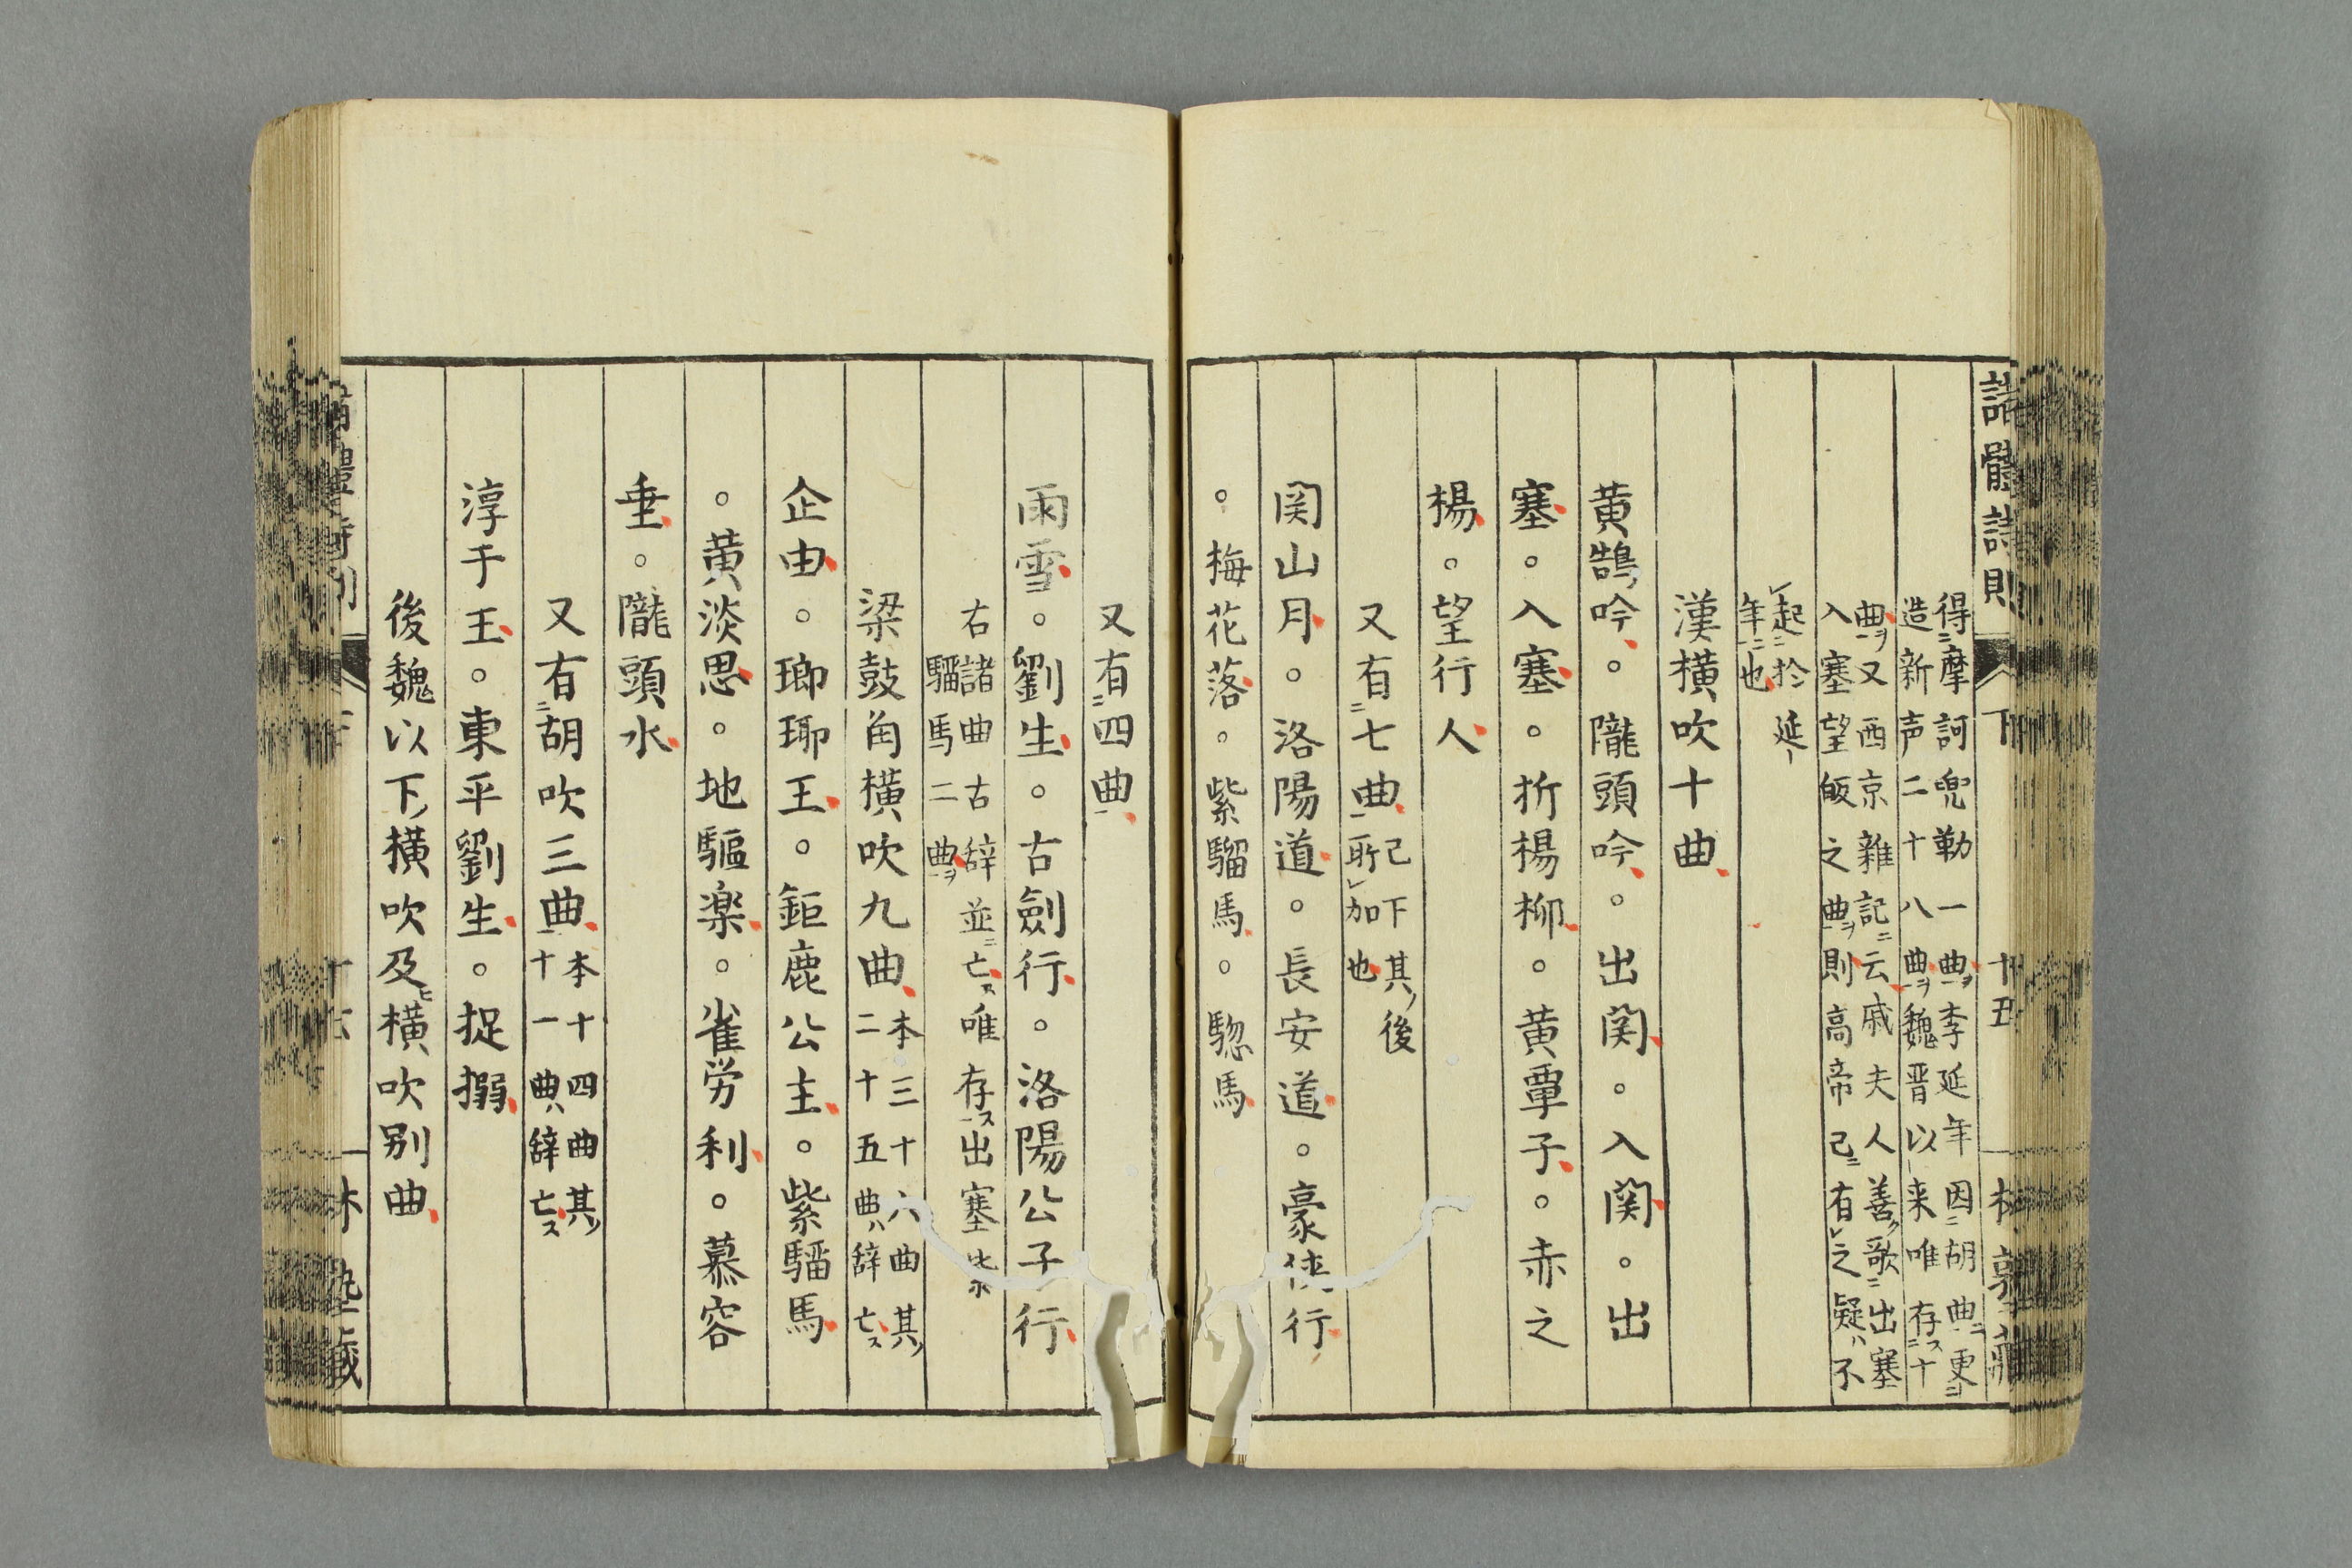 得摩訶兜勒一曲李延年因胡曲更
造新声二十八曲魏晋以来唯存十
曲又西京雜記云戚夫人善歌出塞
入塞望皈之曲則高帝已有之疑不
起於延
年也
漢横吹十曲
黄鵠吟。隴頭吟。出関。入関。出
塞。入塞。折楊柳。黄覃子。赤之
楊。望行人
又有七曲
己下其後
所加也
関山月。洛陽道。長安道。豪侠行
。梅花落。紫騮馬。騘馬
又有四曲
雨雪。劉生。古劍行。洛陽公子行
右諸曲古辞並亡唯存出塞紫
騮馬二曲
梁鼓角横吹九曲
本三十六曲其
二十五曲辞亡
企由。瑯琊王。鉅鹿公主。紫騮馬
。黄淡思。地驅楽。雀労利。慕容
垂。隴頭水
又有胡吹三曲
本十四曲其
十一曲辞亡
淳于王。東平劉生。捉搦
後魏以下横吹及横吹别曲